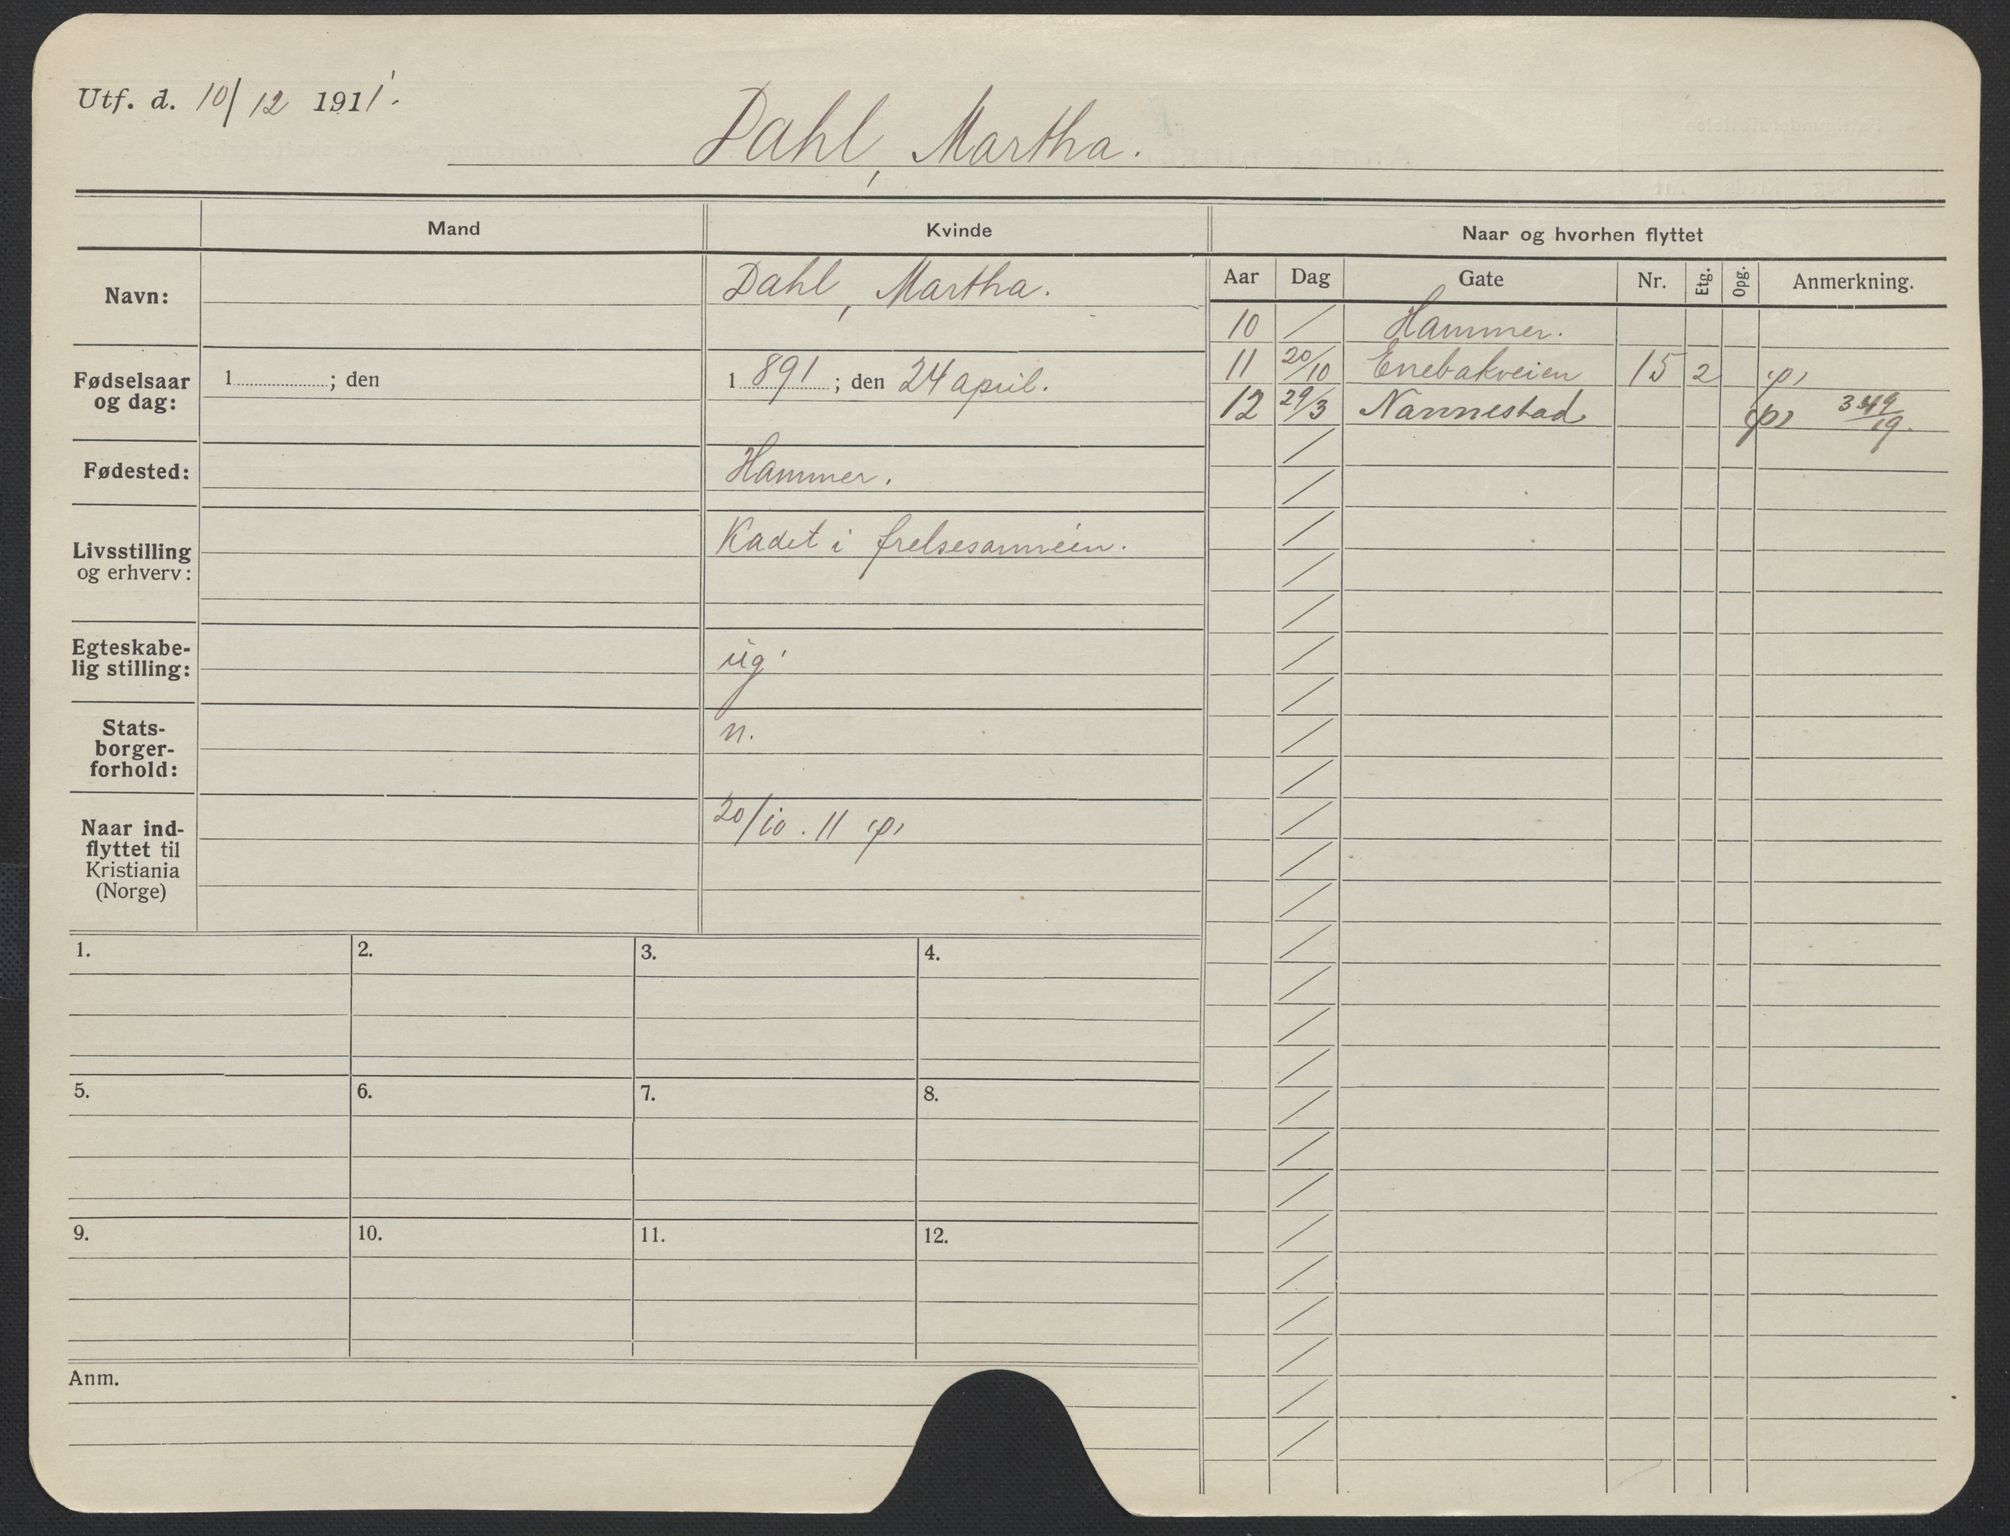 Utf. d. 10/12 1911.
Dahl, Martha.
Mand
Kvinde
Naar og hvorhen flyttet
Navn:
Dahl, Martha.
Fødselsaar
og dag:
1 ; den
1 891 ; den 24 april.
Fødested:
Hammer.
Livsstilling
og erhverv:
Kadet i frelsesarméen.
Egteskabe-
lig stilling:
ug.
Stats-
borger-
forhold:
n.
Naar ind-
flyttet til
Kristiania
(Norge)
20/10. 11 p
Aar Dag Gate Nr. Etg. Opg. Anmerkning.
10 / Hammer.
11 20/10 Enebakveien 15 2 p
12 29/3 Nannestad p
1. 2. 3. 4.
5. 6. 7. 8.
9. 10. 11. 12.
Anm.